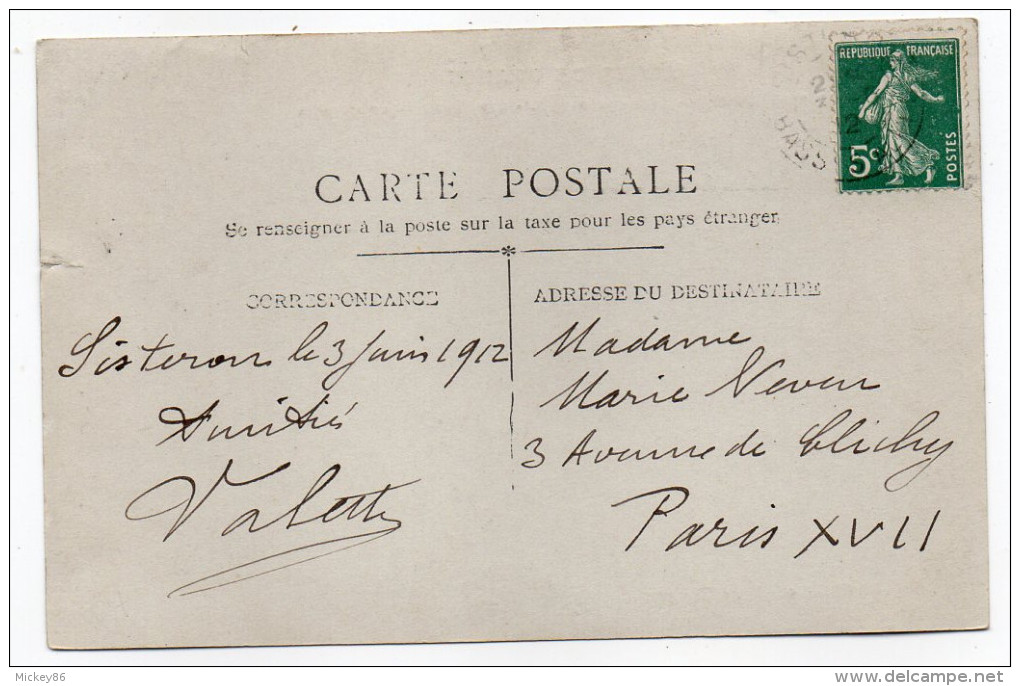 REPUBLIQUE FRANÇAISE
5c
POSTES
BASS
CARTE POSTALE
Se renseigner à la poste sur la taxe pour les pays étranger
CORRESPONDANCE
Sisteron le 3 Juin 1912
Amitiés
Valette
ADRESSE DU DESTINATAIRE
Madame
Marie Neveu
3 Avenue de Clichy
Paris XVII
Mickey86
www.delcampe.net